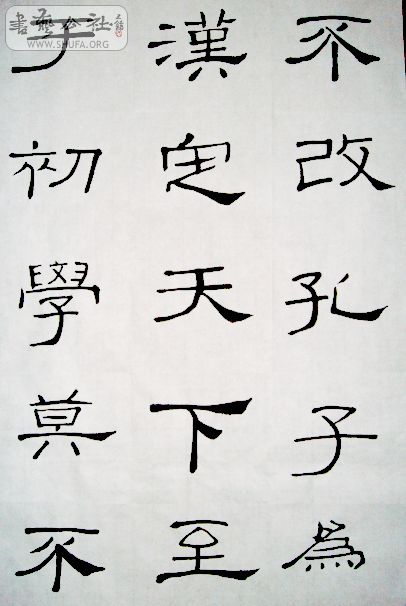 書藝公社
WWW.SHUFA.ORG
不改孔子為
漢定天下至
于初學莫不